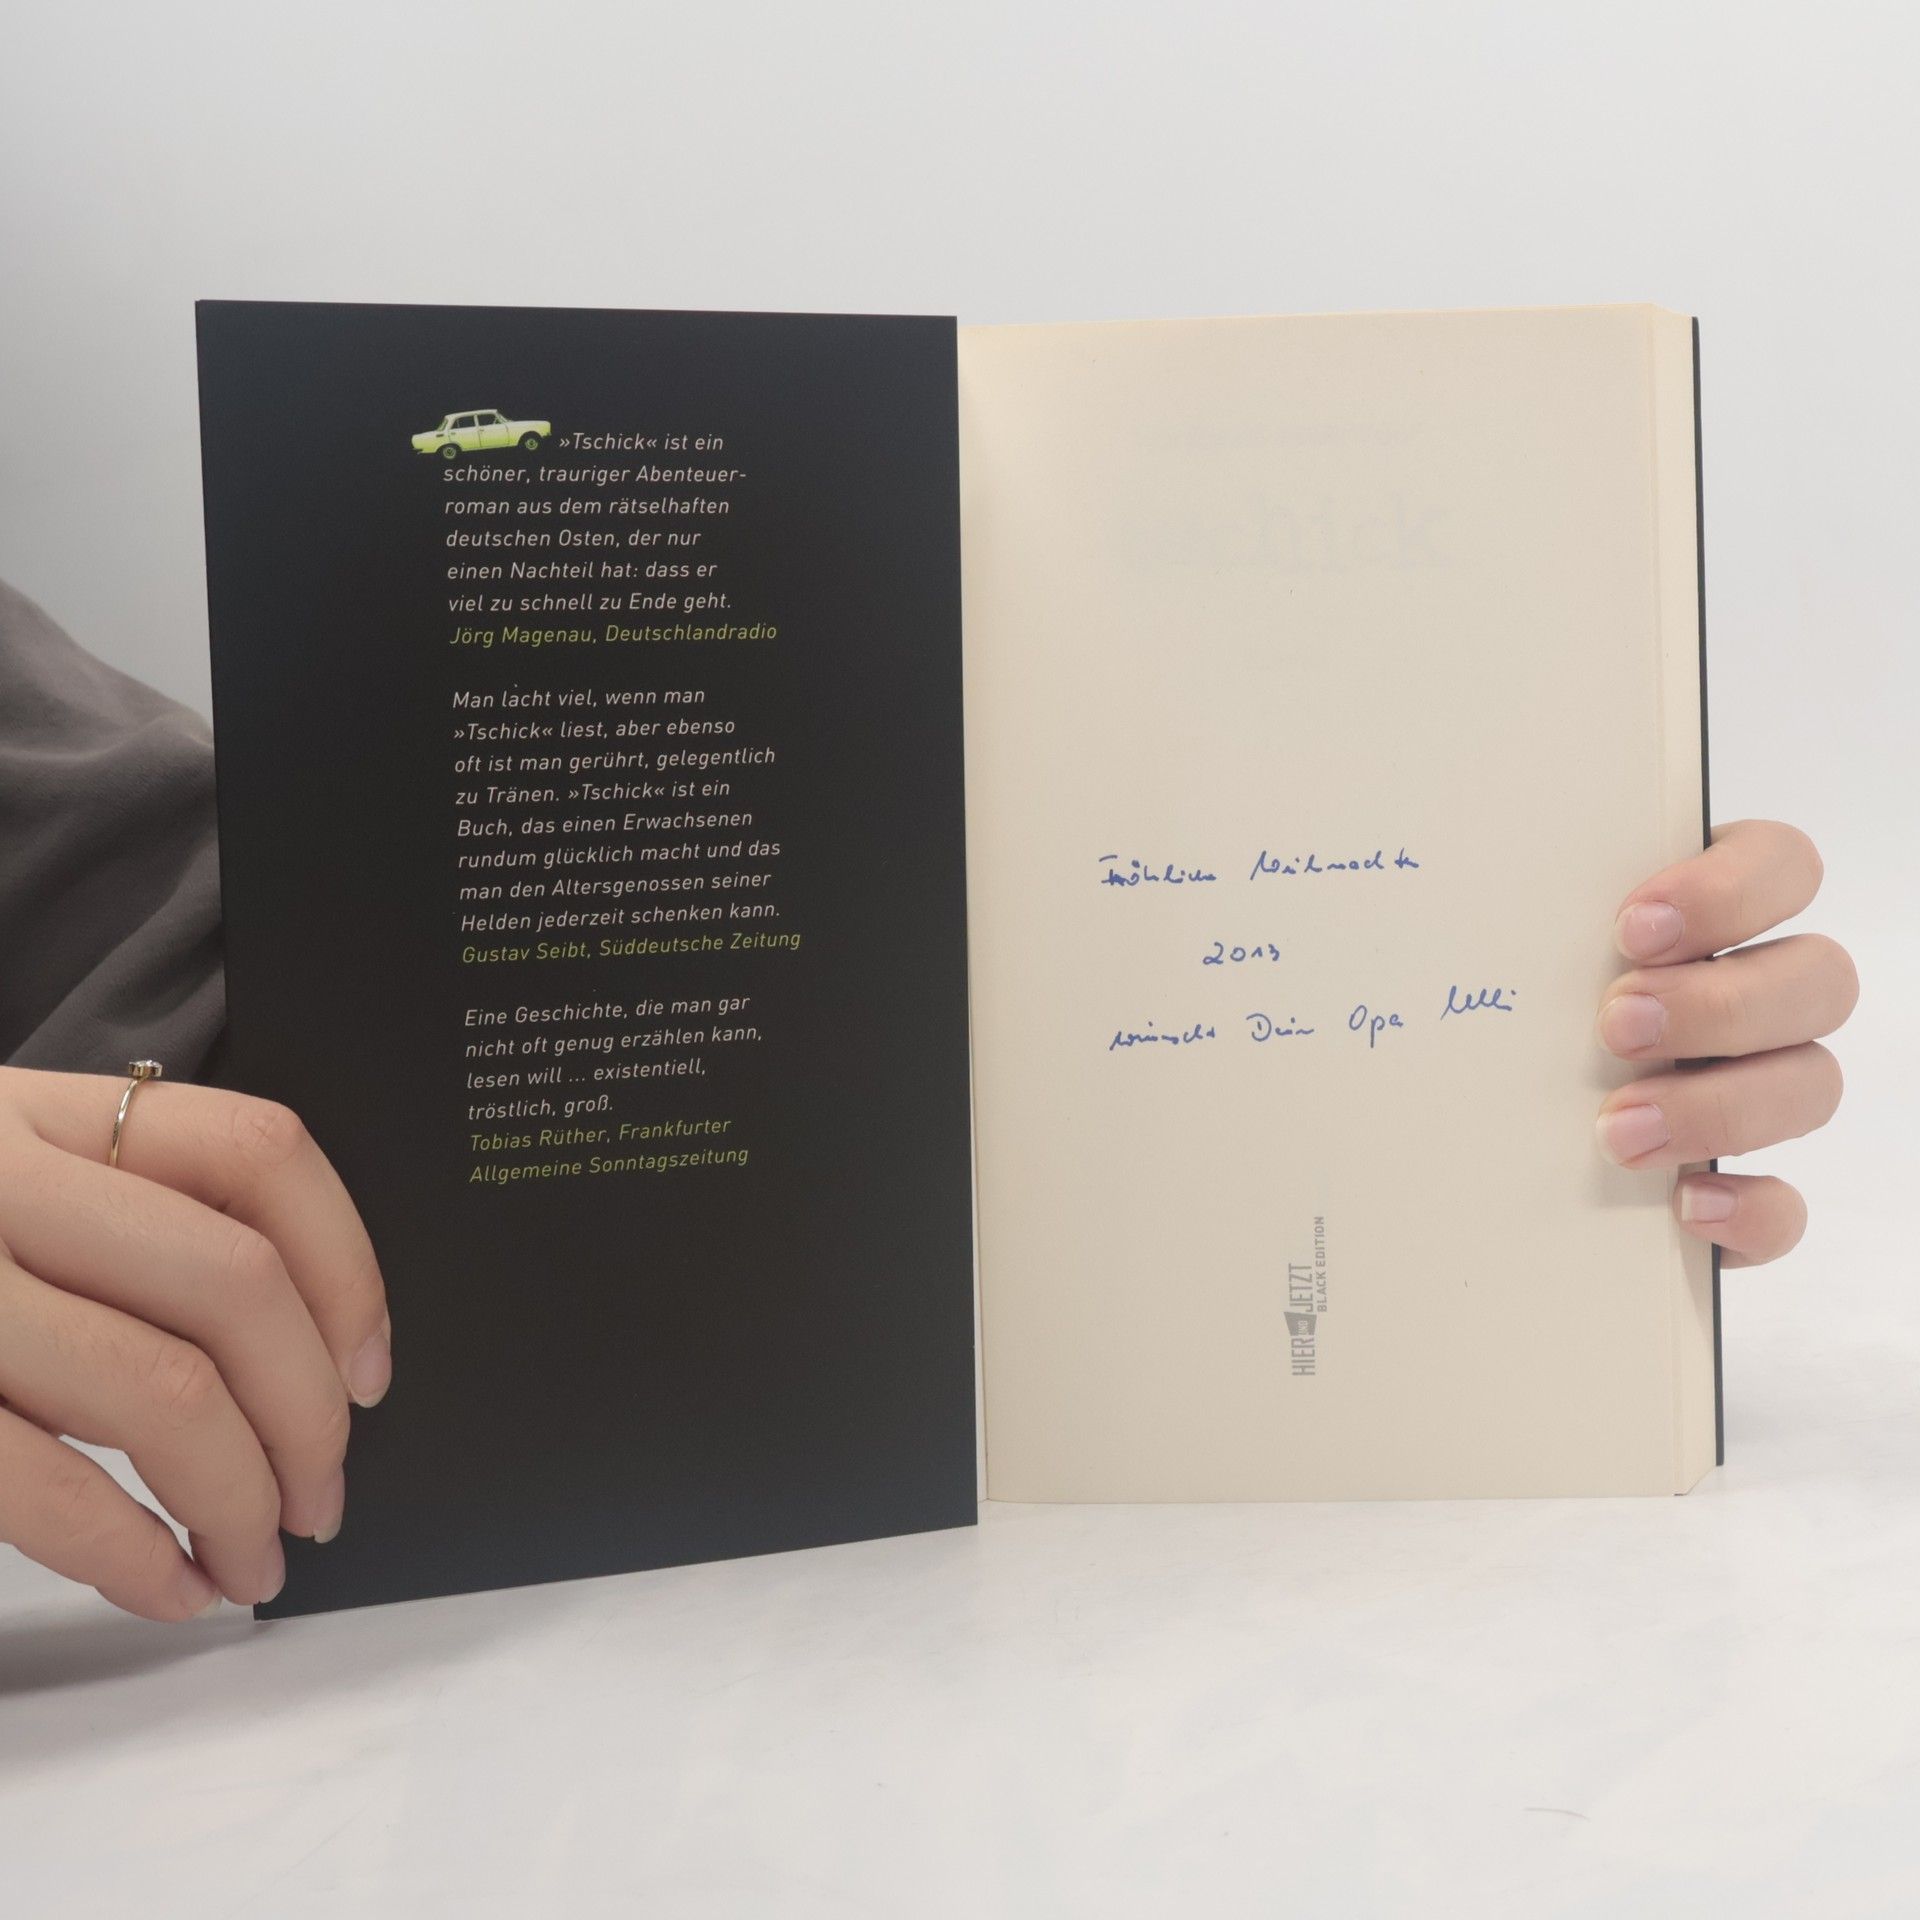 »Tschick« ist ein
schöner, trauriger Abenteuer-
roman aus dem rätselhaften
deutschen Osten, der nur
einen Nachteil hat: dass er
viel zu schnell zu Ende geht.
Jörg Magenau, Deutschlandradio
Man lacht viel, wenn man
»Tschick« liest, aber ebenso
oft ist man gerührt, gelegentlich
zu Tränen. »Tschick« ist ein
Buch, das einen Erwachsenen
rundum glücklich macht und das
man den Altersgenossen seiner
Helden jederzeit schenken kann.
Gustav Seibt, Süddeutsche Zeitung
Eine Geschichte, die man gar
nicht oft genug erzählen kann,
lesen will ... existentiell,
tröstlich, groß.
Tobias Rüther, Frankfurter
Allgemeine Sonntagszeitung
Fröhliche Weihnachten
2013
wünscht Dein Opa
HIER UND JETZT
BLACK EDITION